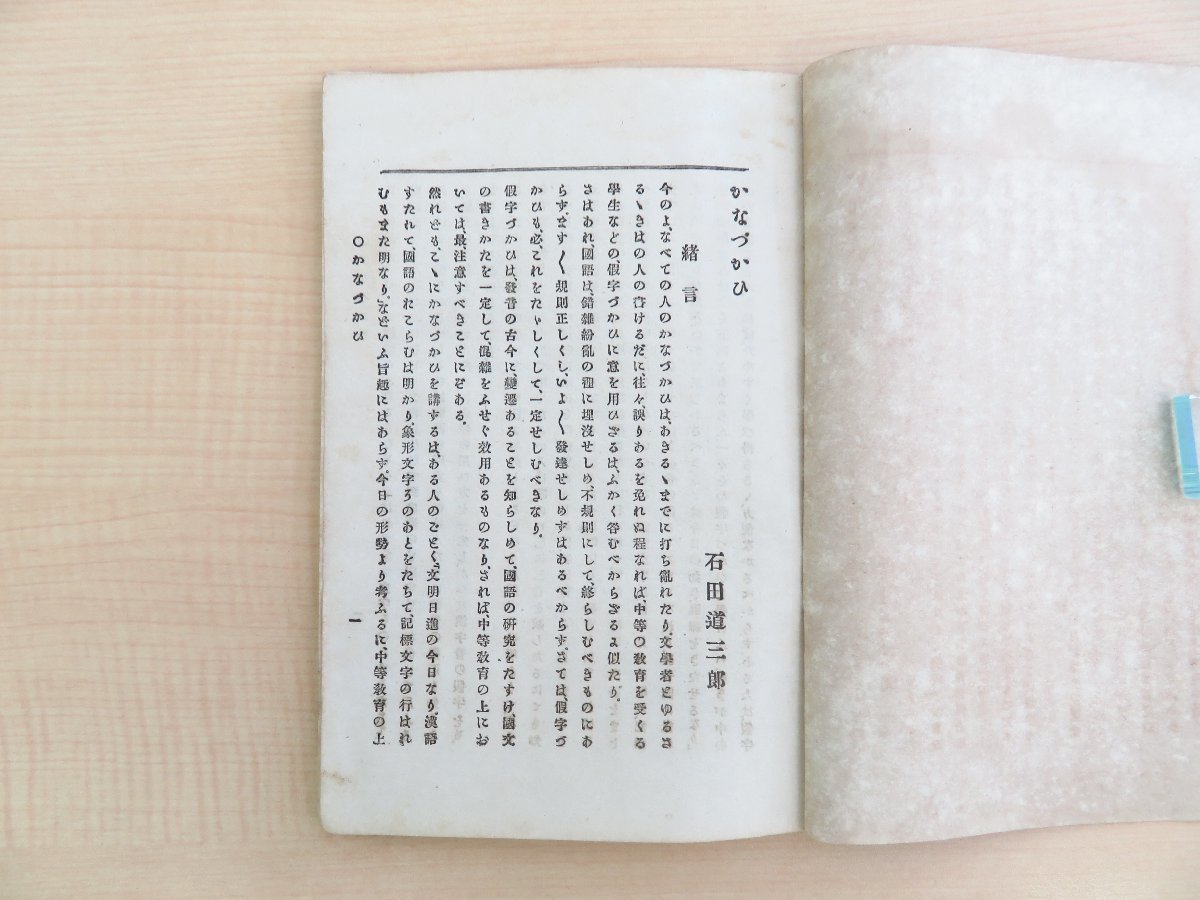 かなづかひ
石田道三郎
緒言
今のよ、なべての人のかなづかひは、あきるゝまでに打ち亂れたり、文學者とゆるさ
るゝきはの人の書けるだに、往々、誤りあるを免れぬ程なれば、中等〇敎育を受くる
學生などの、假字づかひに意を用ひざるは、ふかく咎むべからざるよ似たり。
さはあれ、國語は、錯雜紛亂の裡に埋沒せしめ、不規則にして、終らしむべきものにあ
らず、ます〳〵規則正しくし、いよ〳〵發達せしめずはあるべからず。さては、假字づ
かひも、必、これをたゞしくして、一定せしむべきなり。
假字づかひは、發音の古今に、變遷あることを知らしめて、國語の硏究をたすけ、國文
の書きかたを一定して、混雜をふせぐ效用あるものなり、されば、中等敎育の上にお
いては、最、注意すべきことにぞある。
然れども、こゝにかなづかひを講ずるは、ある人のごとく、文明日進の今日なり、漢語
すたれて、國語のれこらむは明かり、象形文字ろのあとをたちて、記標文字の行はれ
むもまた明なり。などいふ旨趣にはあらず。今日の形勢より考ふるに、中等敎育の上
〇かなづかひ
一